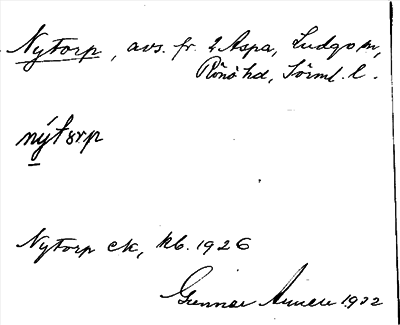 Nytorp, avs. fr. 2 Aspa, Ludgo sn,
Rönö hd, Sörml. l.
nýtərp
Nytorp ek, kb. 1926
Gunnar 1932